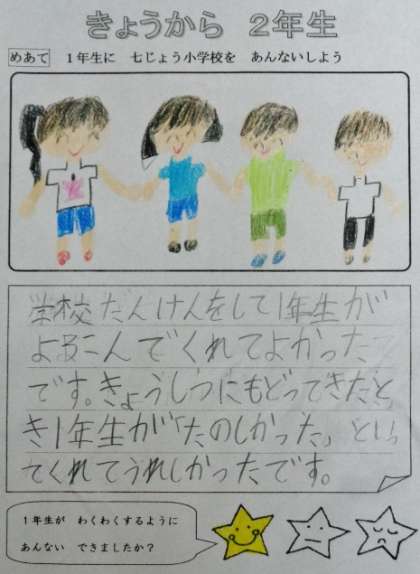 きょうから 2年生
めあて 1年生に 七じょう小学校を あんないしよう
学校だんけんをして1年生が
よろこんでくれてよかった
です。きょうしつにもどってきたと
き1年生が「たのしかった」といっ
てくれてうれしかったです。
1年生が わくわくするように
あんない できましたか?